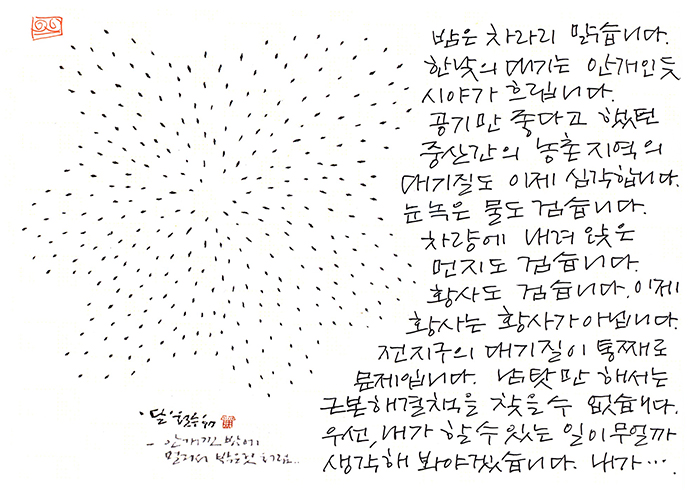 밤은 차라리 맑습니다.
한낮의 대기는 안개인듯
시야가 흐립니다.
공기만 좋다고 했던
중산간의 농촌지역의
대기질도 이제 심각합니다.
눈 녹은 물도 검습니다.
차량에 내려 앉은
먼지도 검습니다.
황사도 검습니다. 이제
황사는 황사가 아닙니다.
전지구의 대기질이 통째로
문제입니다. 남탓만 해서는
근본해결책을 찾을 수 없습니다.
우선, 내가 할 수 있는 일이 무얼까
생각해 봐야겠습니다. 내가….
안개낀 밤에
멀리서